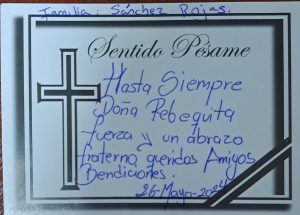 Familia: Sánchez Rojas.
Sentido Pésame
Hasta Siempre
Doña Rebequita
fuerza y un abrazo
fraterno queridos Amigos
Bendiciones.
26-Mayo-2024